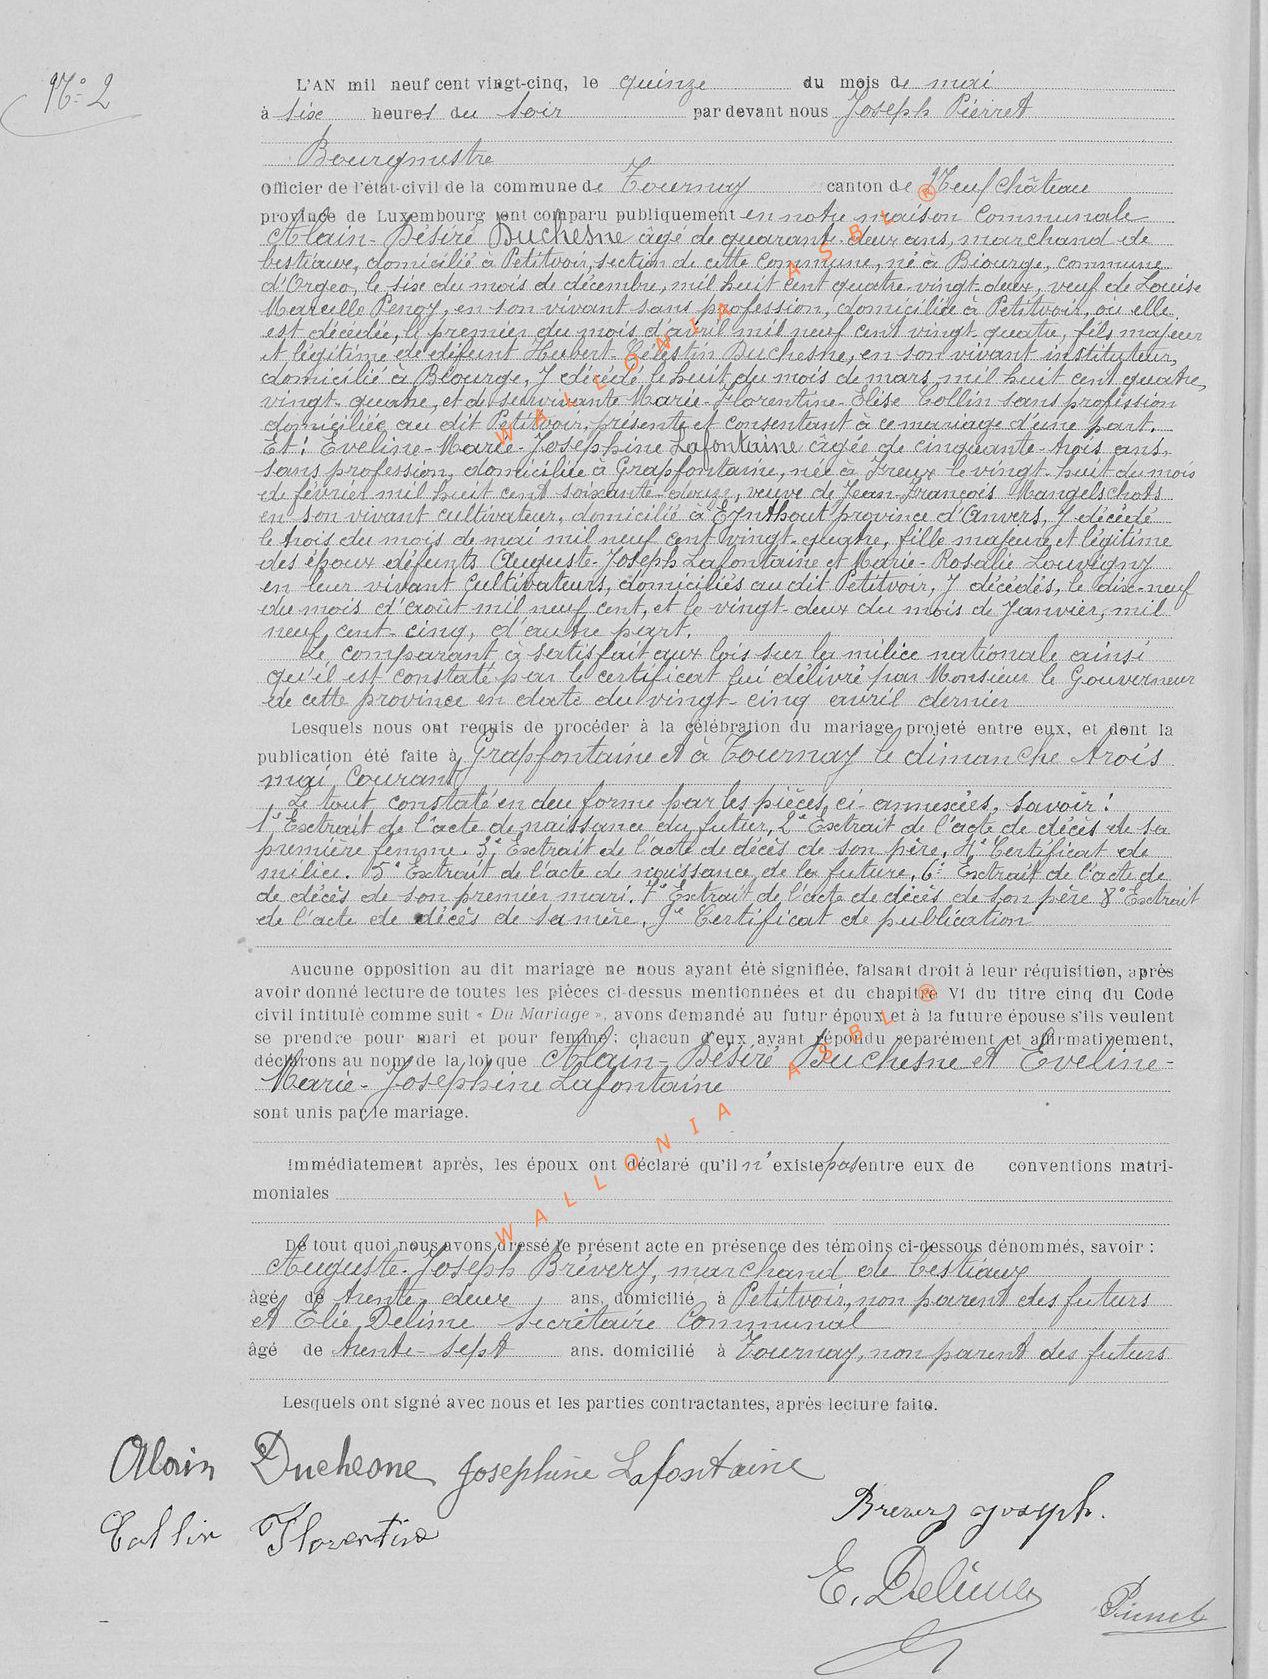 N° 2
L'AN mil neuf cent vingt-cinq, le quinze du mois de mai
à six heures du soir par devant nous Joseph Pierret
Bourgmestre
Officier de l'état-civil de la commune de Tournay canton de Neufchâteau
province de Luxembourg sont comparu publiquement en notre maison Communale
Alain-Désiré Duchesne âgé de quarante-deux ans, marchand de
bestiaux, domicilié à Petitvoir, section de cette commune, né à Biourge, commune
d'Orgeo, le six du mois de décembre, mil huit cent quatre-vingt-deux, veuf de Louise
Marcelle en son vivant sans profession, domiciliée à Petitvoir, où elle
est décédée, le premier du mois d'avril mil neuf cent vingt-quatre, fils majeur
et légitime de défunt Hubert-Célestin Duchesne, en son vivant instituteur,
domicilié à Biourge, y décédé le huit du mois de mars mil huit cent quatre
vingt-quatre, et de survivante Marie-Florentine-Elise Collin sans profession
domiciliée au dit Petitvoir, présente et consentant à ce mariage d'une part.
Et: Eveline-Marie-Josephine Lafontaine âgée de cinquante-trois ans,
sans profession, domiciliée à Grapfontaine, née à Freux le vingt-huit du mois
de février mil huit cent soixante-douze, veuve de Jean-François Mangelschots
en son vivant cultivateur, domicilié à Eynthout province d'Anvers, y décédé
le trois du mois de mai mil neuf cent vingt-quatre, fille majeure et légitime
des époux défunts Auguste-Joseph Lafontaine et Marie-Rosalie Louvigny
en leur vivant Cultivateurs, domiciliés au dit Petitvoir, y décédés, le dix-neuf
du mois d'août mil neuf cent, et le vingt-deux du mois de Janvier, mil
neuf cent-cinq, d'autre part.
Le comparant à satisfait aux lois sur la milice nationale ainsi
qu'il est constaté par le certificat lui délivré par Monsieur le Gouverneur
de cette province en date du vingt-cinq avril dernier
Lesquels nous ont requis de procéder à la célébration du mariage projeté entre eux, et dont la
publication été faite à Grapfontaine et à Tournay le dimanche trois
mai Courant
Le tout constaté en due forme par les pièces ci-annexées, savoir:
1° Extrait de l'acte de naissance du futur, 2° Extrait de l'acte de décès de sa
première femme. 3° Extrait de l'acte de décès de son père, 4° Certificat de
milice. 5° Extrait de l'acte de naissance de la future, 6° Extrait de l'acte de
de décès de son premier mari. 7° Extrait de l'acte de décès de son père 8° Extrait
de l'acte de décès de sa mère, 9° Certificat de publication
Aucune opposition au dit mariage ne nous ayant été signifiée, faisant droit à leur réquisition, après
avoir donné lecture de toutes les pièces ci-dessus mentionnées et du chapitre VI du titre cinq du Code
civil intitulé comme suit « Du Mariage », avons demandé au futur époux et à la future épouse s'ils veulent
se prendre pour mari et pour femme; chacun d'eux ayant répondu séparément et affirmativement,
déclarons au nom de la loi que Alain-Désiré Duchesne et Eveline-
Marie-Josephine Lafontaine
sont unis par le mariage.
Immédiatement après, les époux ont déclaré qu'il n'existe pas entre eux de conventions matri-
moniales
De tout quoi nous avons dressé le présent acte en présence des témoins ci-dessous dénommés, savoir :
Auguste-Joseph Brévery, marchand de bestiaux
âgé de trente-deux ans, domicilié à Petitvoir, non parent des futurs
et Elie Delime Secrétaire Communal
âgé de trente-sept ans. domicilié à Tournay, non parent des futurs
Lesquels ont signé avec nous et les parties contractantes, après lecture faite.
Alain Duchesne Josephine Lafontaine
Brevery Joseph.
Collin Florentine
E. Delime
Pierret
WALLONIA ASBL ®
WALLONIA ASBL ®